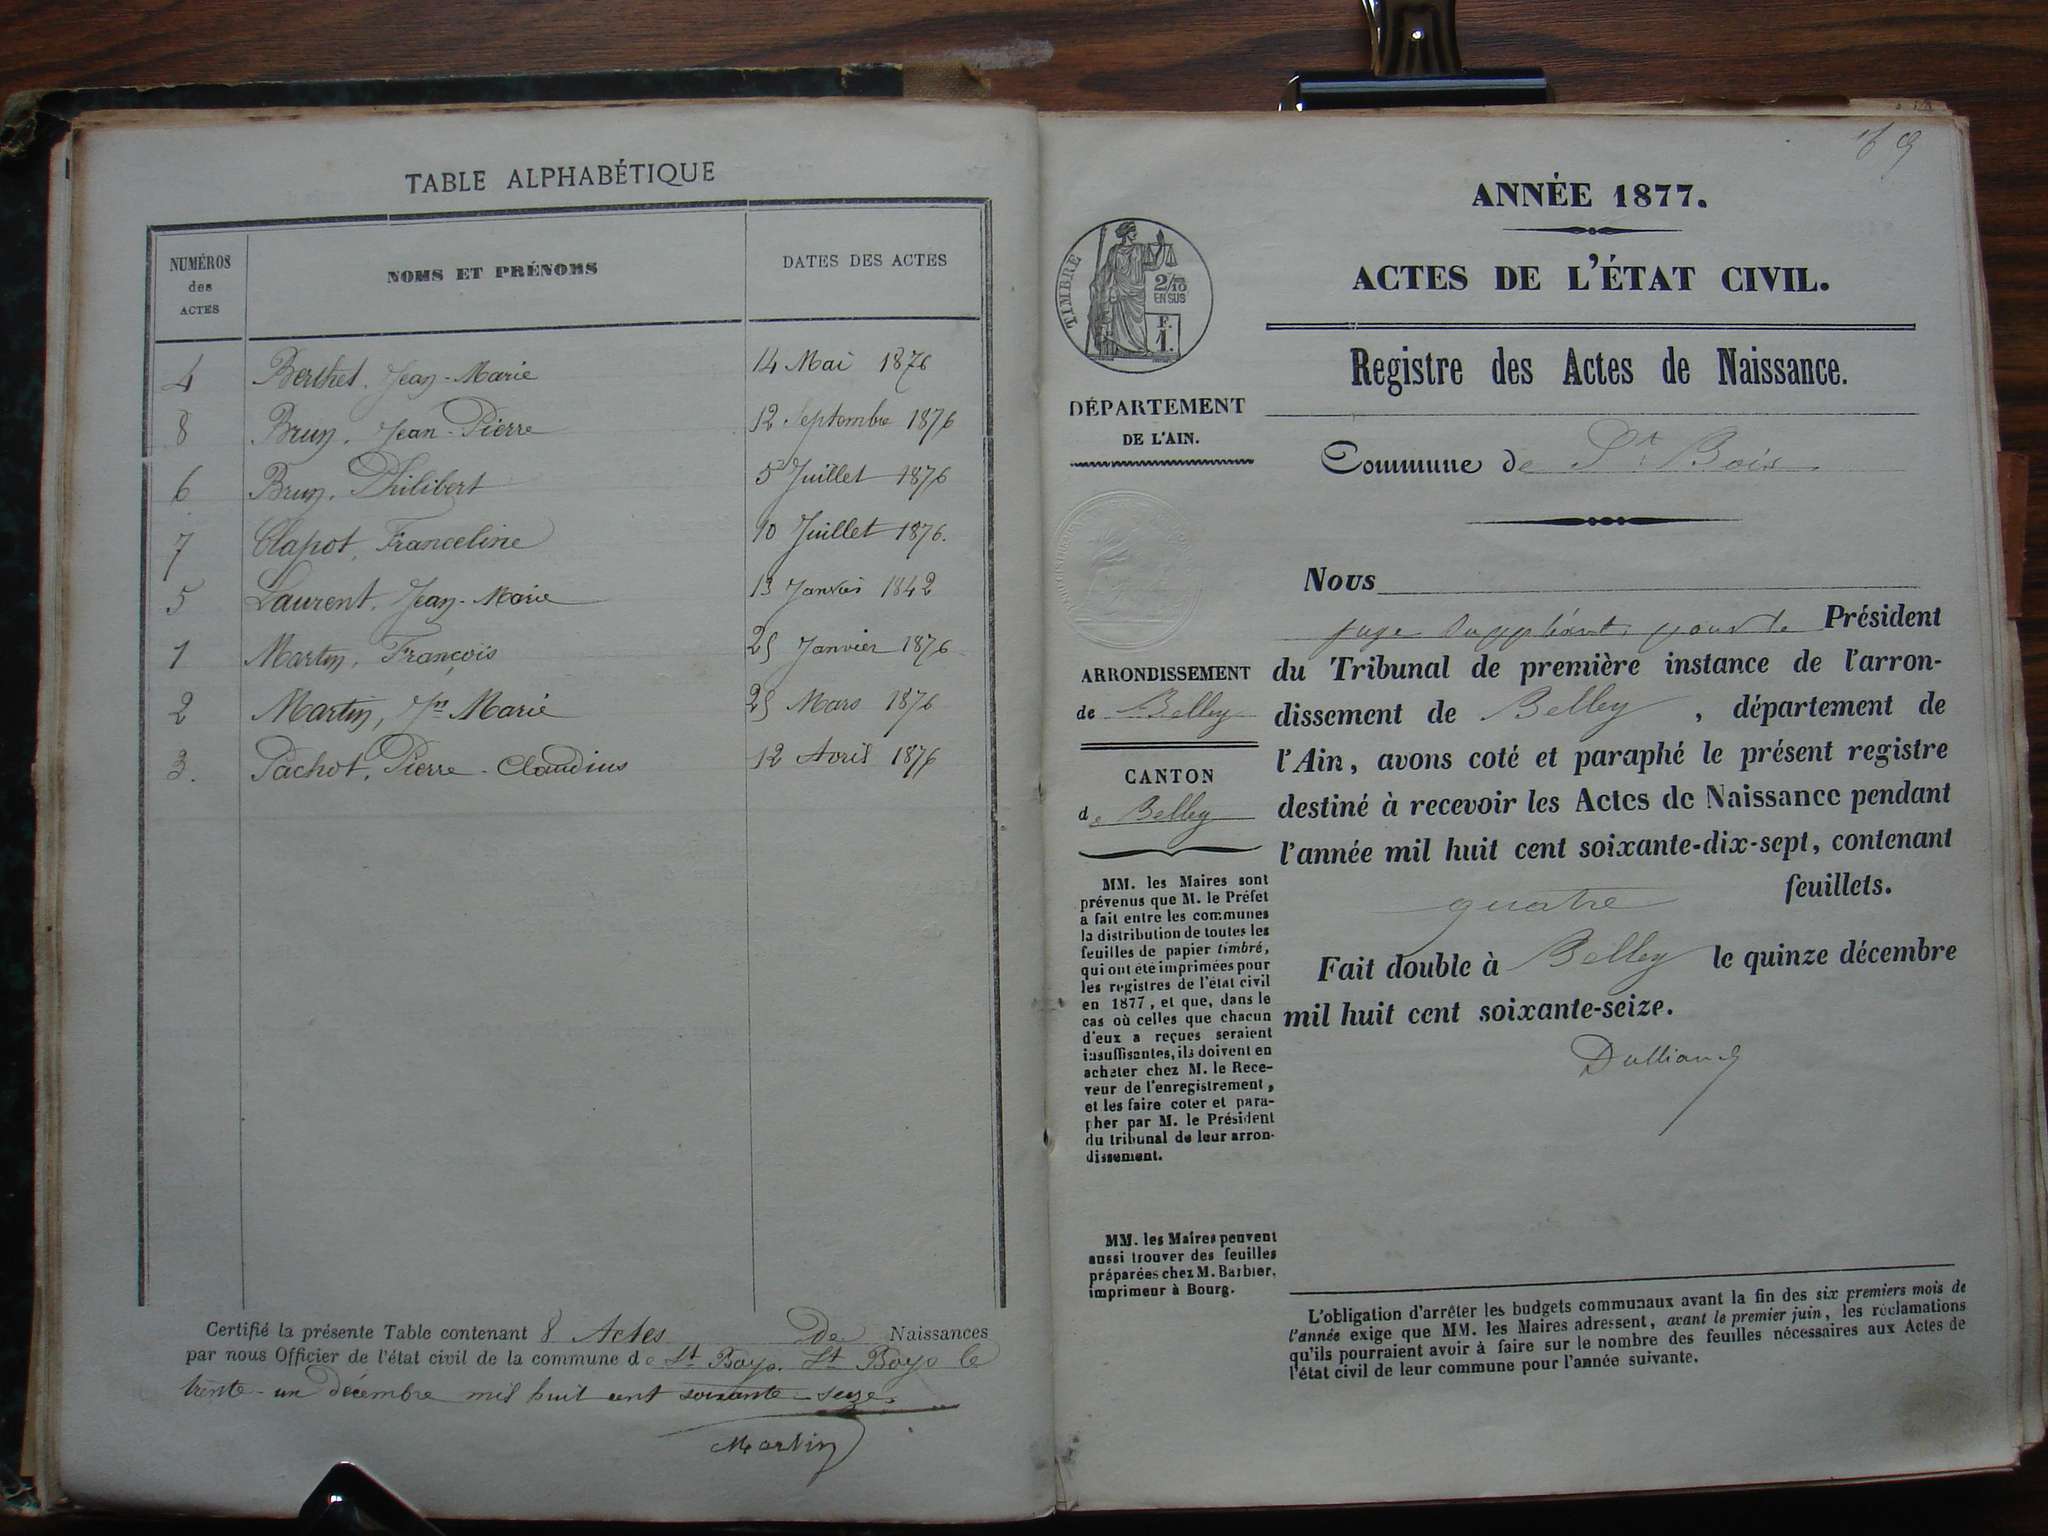 TABLE ALPHABÉTIQUE
NUMÉROS
des
ACTES
NOMS ET PRÉNOMS
DATES DES ACTES
4 Berthet, Jean-Marie 14 Mai 1876
8 Brun, Jean-Pierre 12 Septembre 1876
6 Brun, Philibert 5 Juillet 1876
7 Clapot, Franceline 10 Juillet 1876.
5 Laurent, Jean-Marie 13 Janvier 1842
1 Martin, François 25 Janvier 1876
2 Martin, Jn Marie 25 Mars 1876
3. Pachot, Pierre-Claudius 12 Avril 1876
Certifié la présente Table contenant 8 Actes De Naissances
par nous Officier de l'état civil de la commune de St Boys. St Boys le
trente-un décembre mil huit cent soixante-seize.
Martin
ANNÉE 1877.
ACTES DE L'ÉTAT CIVIL.
TIMBRE
2/10
EN SUS
F.
1.
Registre des Actes de Naissance.
DÉPARTEMENT
DE L'AIN.
Commune de St Bois
Nous
juge suppléant, pour le Président
du Tribunal de première instance de l'arron-
dissement de Belley, département de
l'Ain, avons coté et paraphé le présent registre
destiné à recevoir les Actes de Naissance pendant
l'année mil huit cent soixante-dix-sept, contenant
quatre feuillets.
Fait double à Belley le quinze décembre
mil huit cent soixante-seize.
Dulliand
ARRONDISSEMENT
de Belley
CANTON
de Belley
MM. les Maires sont
prévenus que M. le Préfet
a fait entre les communes
la distribution de toutes les
feuilles de papier timbré,
qui ont été imprimées pour
les registres de l'état civil
en 1877, et que, dans le
cas où celles que chacun
d'eux a reçues seraient
insuffisantes, ils doivent en
acheter chez M. le Rece-
veur de l'enregistrement,
et les faire coter et para-
pher par M. le Président
du tribunal de leur arron-
dissement.
MM. les Maires peuvent
aussi trouver des feuilles
préparées chez M. Barbier,
imprimeur à Bourg.
L'obligation d'arrêter les budgets communaux avant la fin des six premiers mois de
l'année exige que MM. les Maires adressent, avant le premier juin, les réclamations
qu'ils pourraient avoir à faire sur le nombre des feuilles nécessaires aux Actes de
l'état civil de leur commune pour l'année suivante.